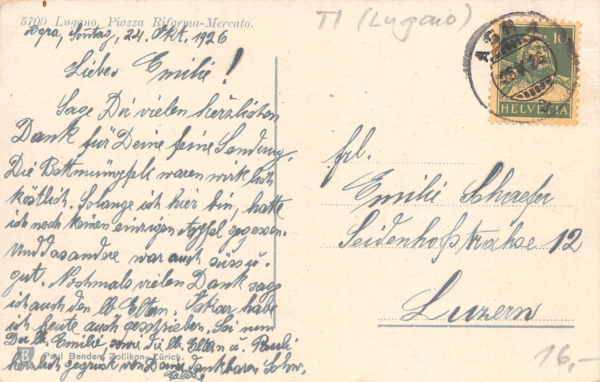 5700 Lugano, Piazza Riforma-Mercato.
Agra, Sontag, 24. Okt. 1926
Liebes Emilie!
Sage Dir vielen herzlichen
Dank für Deine feine Sendung.
Die Bettmümpfeli waren wirklich
köstlich. Solange ich hier bin, hatte
ich noch keinen einzigen Apfel gegessen.
Und das andere war auch süss u.
gut. Nochmals vielen Dank sage
ich auch den lb. Eltern. Oskar habe
ich heute auch geschrieben. Sei nun
Du lb. Emilie sowie die lb. Eltern u. Pauli
herzlich gegrüsst von Deiner dankbaren
Paul Bender, Zollikon-Zürich.
TI (Lugano)
AGRA
10
HELVETIA
Frl.
Emilie Schaefer
Seidenhofstrasse 12
Luzern
16,-